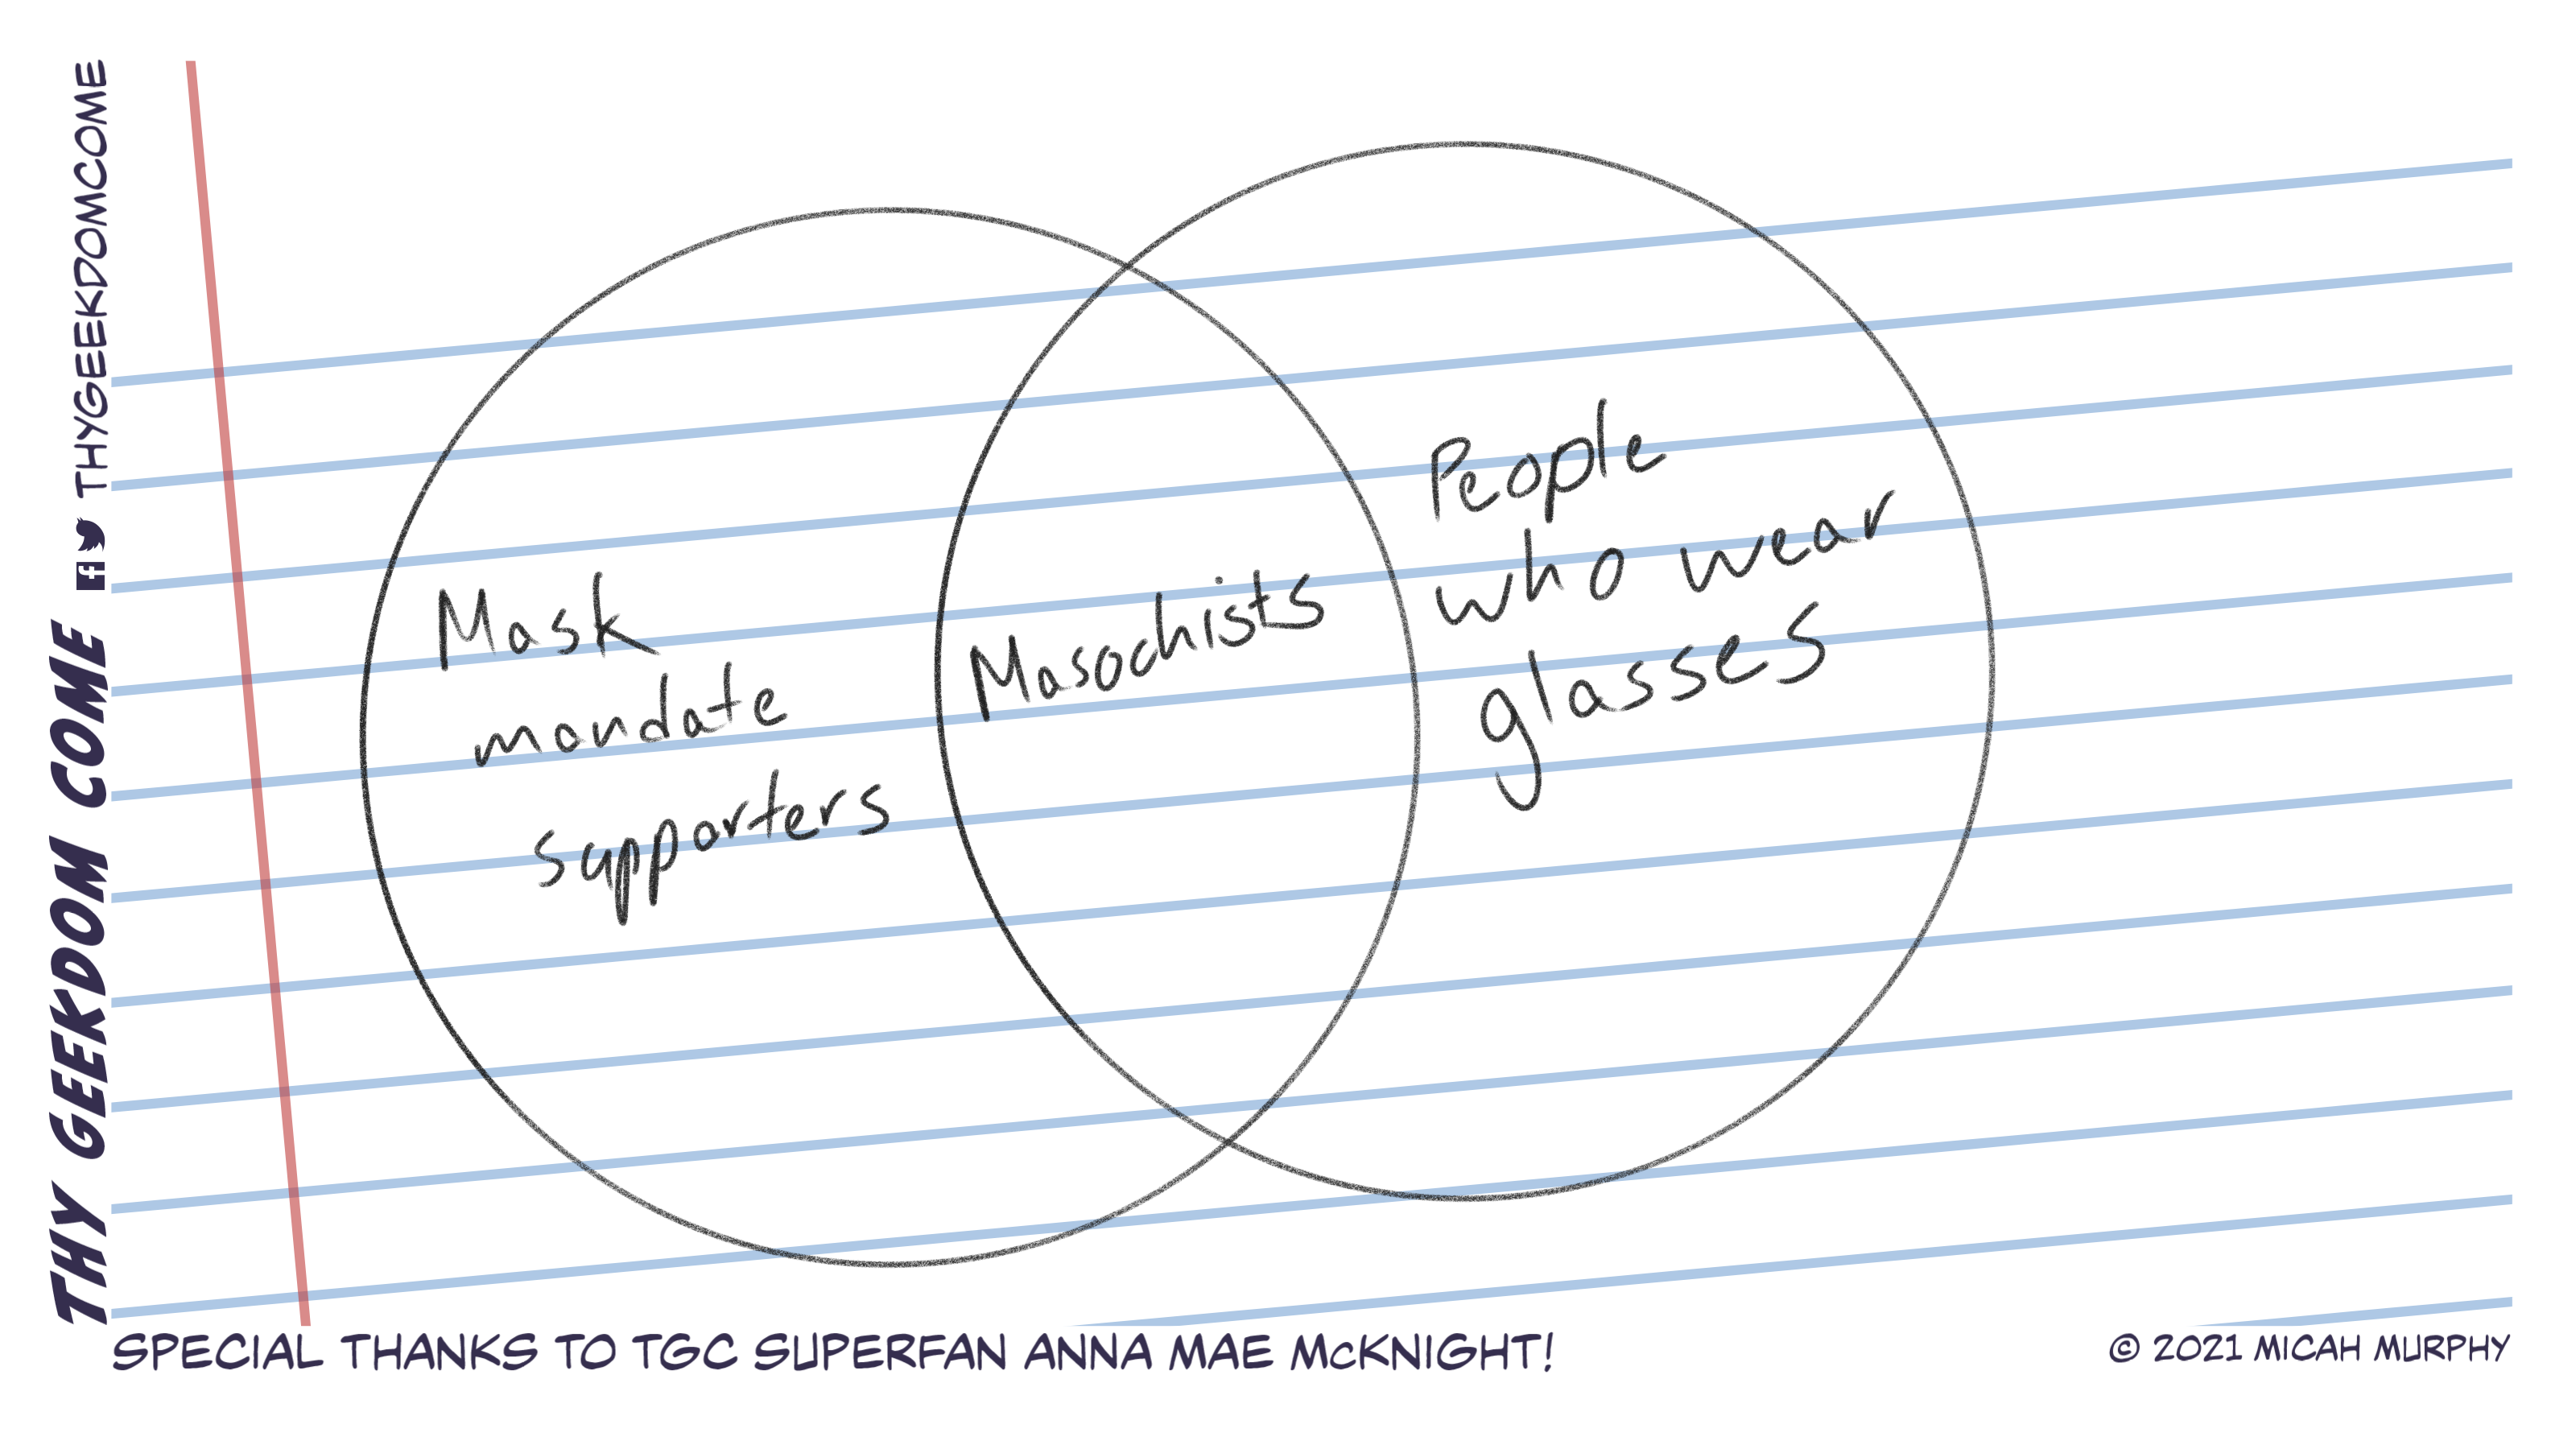 THY GEEKDOM COME THYGEEKDOMCOME
Mask
mandate
supporters
Masochists
People
who wear
glasses
SPECIAL THANKS TO TGC SUPERFAN ANNA MAE McKNIGHT!
© 2021 MICAH MURPHY